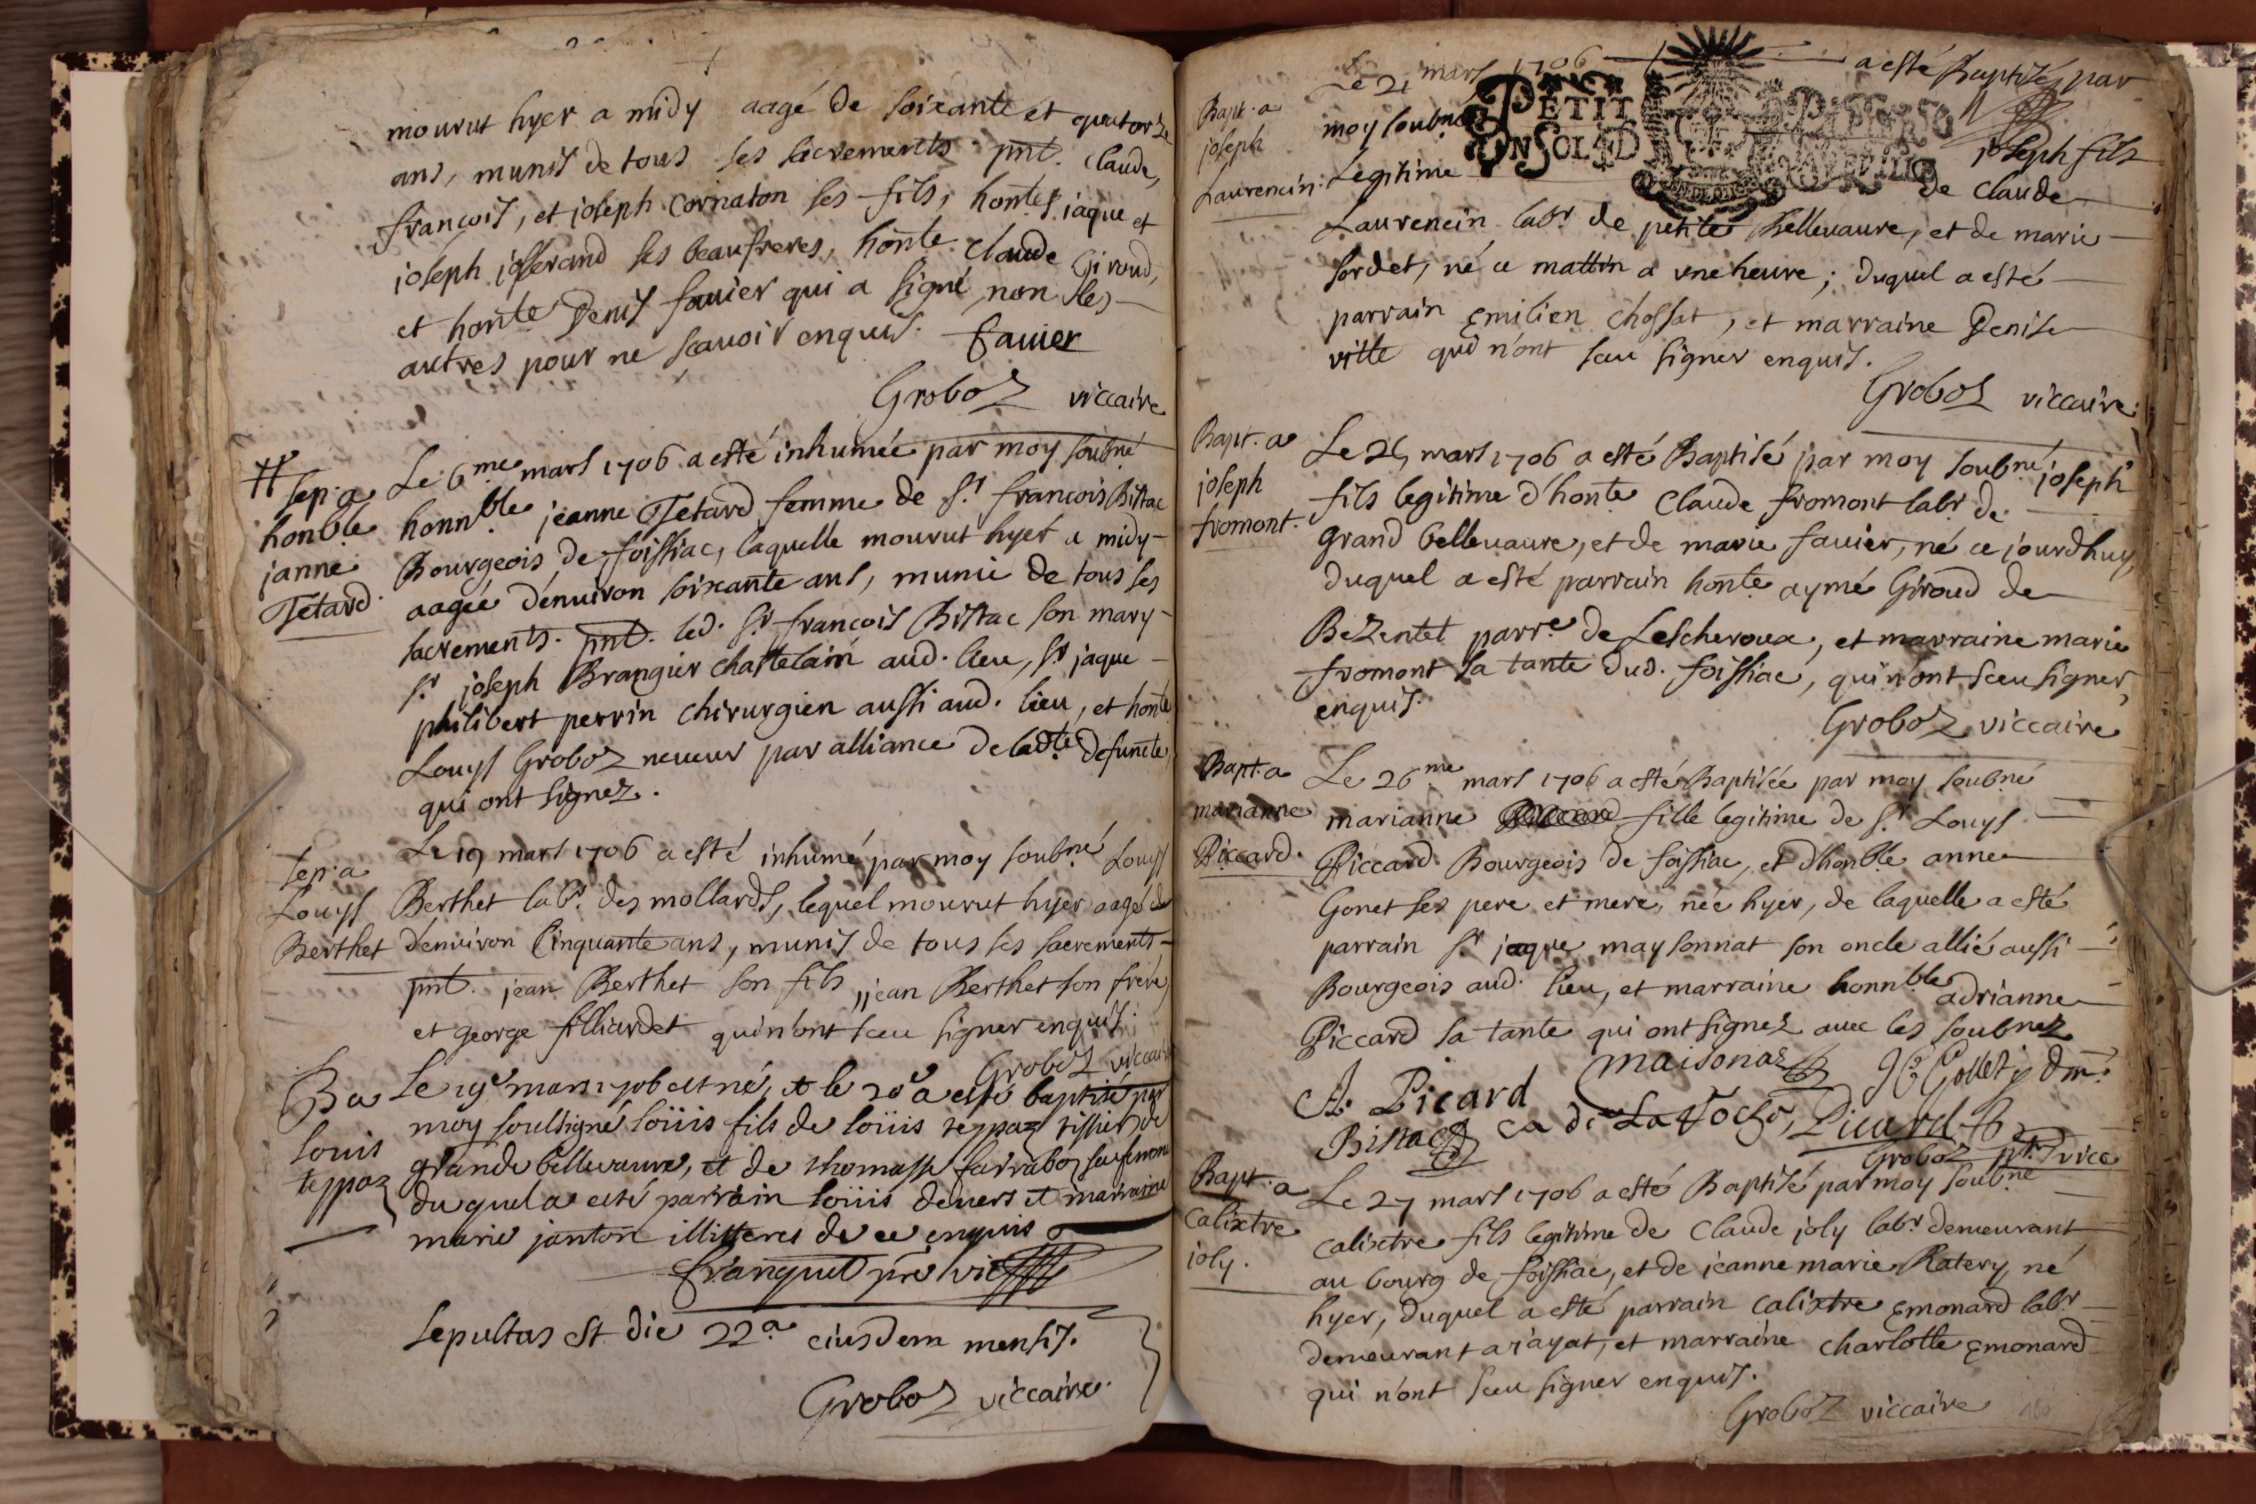 mourut hyer a midy aagé de soixante et quatorze
ans, munis de tous ses sacrements pnt. Claude,
francois, et joseph cornaton ses fils, honte. jaque et
joseph josserand ses beaufreres, honte. claude Giroud,
et honte Denis fauier qui a signé, non les
autres pour ne scauoir enquis. fauier
Groboz viccaire
Sep. a
honble
janne
Tetard.
Le 6me mars 1706 a esté inhumée par moy soubné
honnble jeanne Tetard femme de sr. francois Bistac
Bourgeois de foissiac, laquelle mourut hyer a midy
aagée d'enuiron soixante ans, munie de tous ses
sacrements. pnt. led. sr francois Bistac son mary
sr. joseph Brangier chastelain aud. lieu, sr jaque
philibert perrin chirurgien aussi aud. lieu, et honte
Louys Groboz neueur par alliance de ladte defuncte,
qui ont signez.
Sep. a
Louys
Berthet
Le 19 mars 1706 a esté inhumé par moy soubné Louys
Berthet labr. des mollards, lequel mourut hyer aagé de
d'enuiron Cinquante ans, munis de tous ses sacrements
pnt. jean Berthet son fils, jean Berthet son frere,
et george filliardet qui n'ont sceu signer enquis.
Groboz viccaire
Ba
Louis
teppaz
Le 19e mars 1706 est né, et le 20e a esté baptisé par
moy soussigné loüis fils de loüis teppaz tissier de
grande bellevavre, et de thomasse farraboz sa femme
du quel a esté parrain loüis devers et marraine
marie janton illitteres de ce enquis
franquet pre vic
Sepultas est die 22a eiusdem mensis.
Groboz viccaire.
Bapt. a
joseph
Laurencin.
Le 21 mars 1706 a esté Baptisé par
PETIT
EN SOL 4 D
moy soubné joseph fils
Legitime de Claude
Laurencin labr. de petite Belleuaure, et de marie
sordet, né ce mattin a une heure; duquel a esté
parrain Emilien chossat, et marraine Denise
ville qui n'ont sceu signer enquis.
Groboz viccaire.
Bapt. a
joseph
fromont.
Le 25 mars 1706 a esté Baptisé par moy soubné joseph
fils legitime d'honte Claude fromont labr de
grand belleuaure, et de marie fauier, né ce jourdhuy,
duquel a esté parrain honte aymé Giroud de
Bezentet parre. de Lescheroux, et marraine marie
fromont sa tante dud. foissiac, qui n'ont sceu signer,
enquis.
Groboz viccaire
Bapt. a
marianne
Piccard.
Le 26me mars 1706 a esté Baptisée par moy soubné
marianne fille legitime de sr. Louys
Piccard Bourgeois de foissiac, et d'honble anne
Gonet ses pere et mere, née hyer, de laquelle a esté
parrain sr jaque maysonnat son oncle allié aussi
Bourgeois aud. lieu, et marraine honnble adrianne
Piccard sa tante qui ont signez auec les soubnez
maisonaz
A. Picard
Bistac
Picard
Groboz ptr. vicc
Bapt. a
Calixtre
joly.
Le 27 mars 1706 a esté Baptisé par moy soubné
calixtre fils legitime de Claude joly labr demeurant
au bourg de foissiac, et de jeanne marie Ratery, né
hyer, duquel a esté parrain calixtre Emonard labr
demeurant a rayat, et marraine charlotte Emonard
qui n'ont sceu signer enquis.
Groboz viccaire